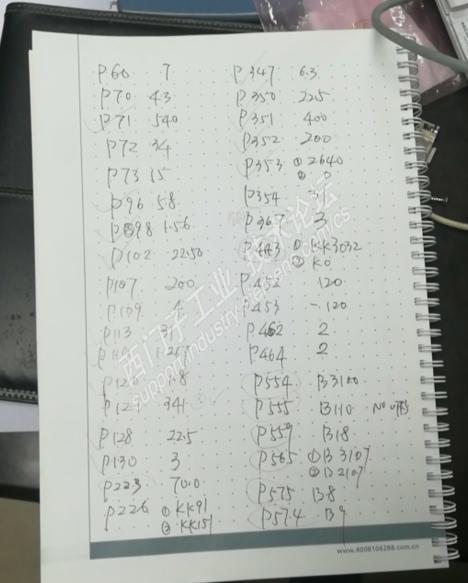 P60 7
P70 4.3
P71 540
P72 34
P73 15
P96 58
P98 1.56
P102 22.50
P107 200
P109 4
P113
P128 22.5
P130 3
P223 70.0
P226 ① KK91
② KK151
P347 6.3
P350 22.5
P351 400
P352 200
P353 ① 2640
② 0
P354 3
P367 3
P443 ① KK3032
② K0
P452 120
P453 -120
P462 2
P464 2
P554 B3100
P555 B110 No off3
P559 B18
P565 ① B3107
② B2107
P575 B8
P574 B9
西门子工业 技术论坛
support.industry.siemens.com/cs
www.4008104288.com.cn